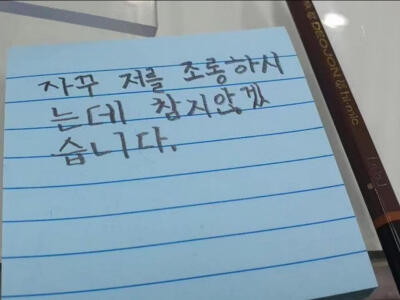 자꾸 저를 조롱하시
는데 참지않겠
습니다.
DEOJON & hi-mic